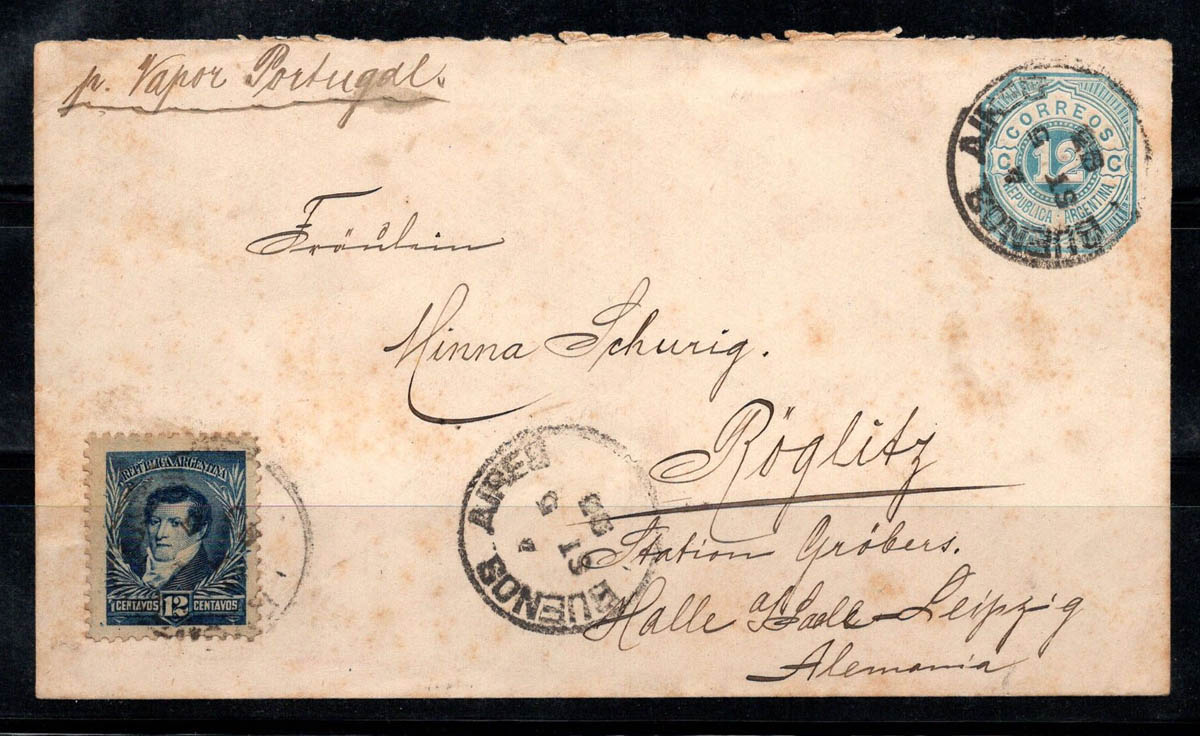 p. Vapor Portugal.
CORREOS
C 12 C
REPUBLICA ARGENTINA
BUENOS AIRES
Fräulein
Minna Schurig.
Röglitz
Station Gröbers.
Halle a/Saale-Leipzig
Alemania
BUENOS AIRES
REPUBLICA ARGENTINA
CENTAVOS 12 CENTAVOS